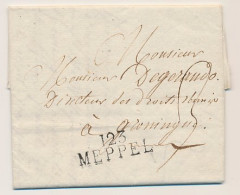 Monsieur
Monsieur Degerando
Directeur des droits réunis
à Groningue
123
MEPPEL